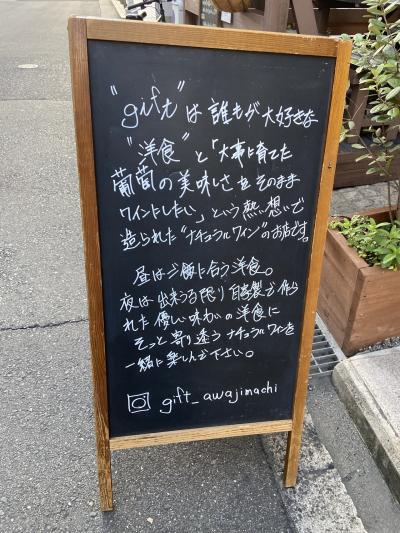 "gift"は誰もが大好きな
"洋食"と「大事に育てた
葡萄の美味しさをそのまま
ワインにしたい」という熱い想いで
造られた"ナチュラルワイン"のお店です。
昼はご飯に合う洋食。
夜は出来うる限り自家製で作ら
れた優しい味わいの洋食に
そっと寄り添うナチュラルワインを
一緒に楽しんで下さい。
gift_awajimachi